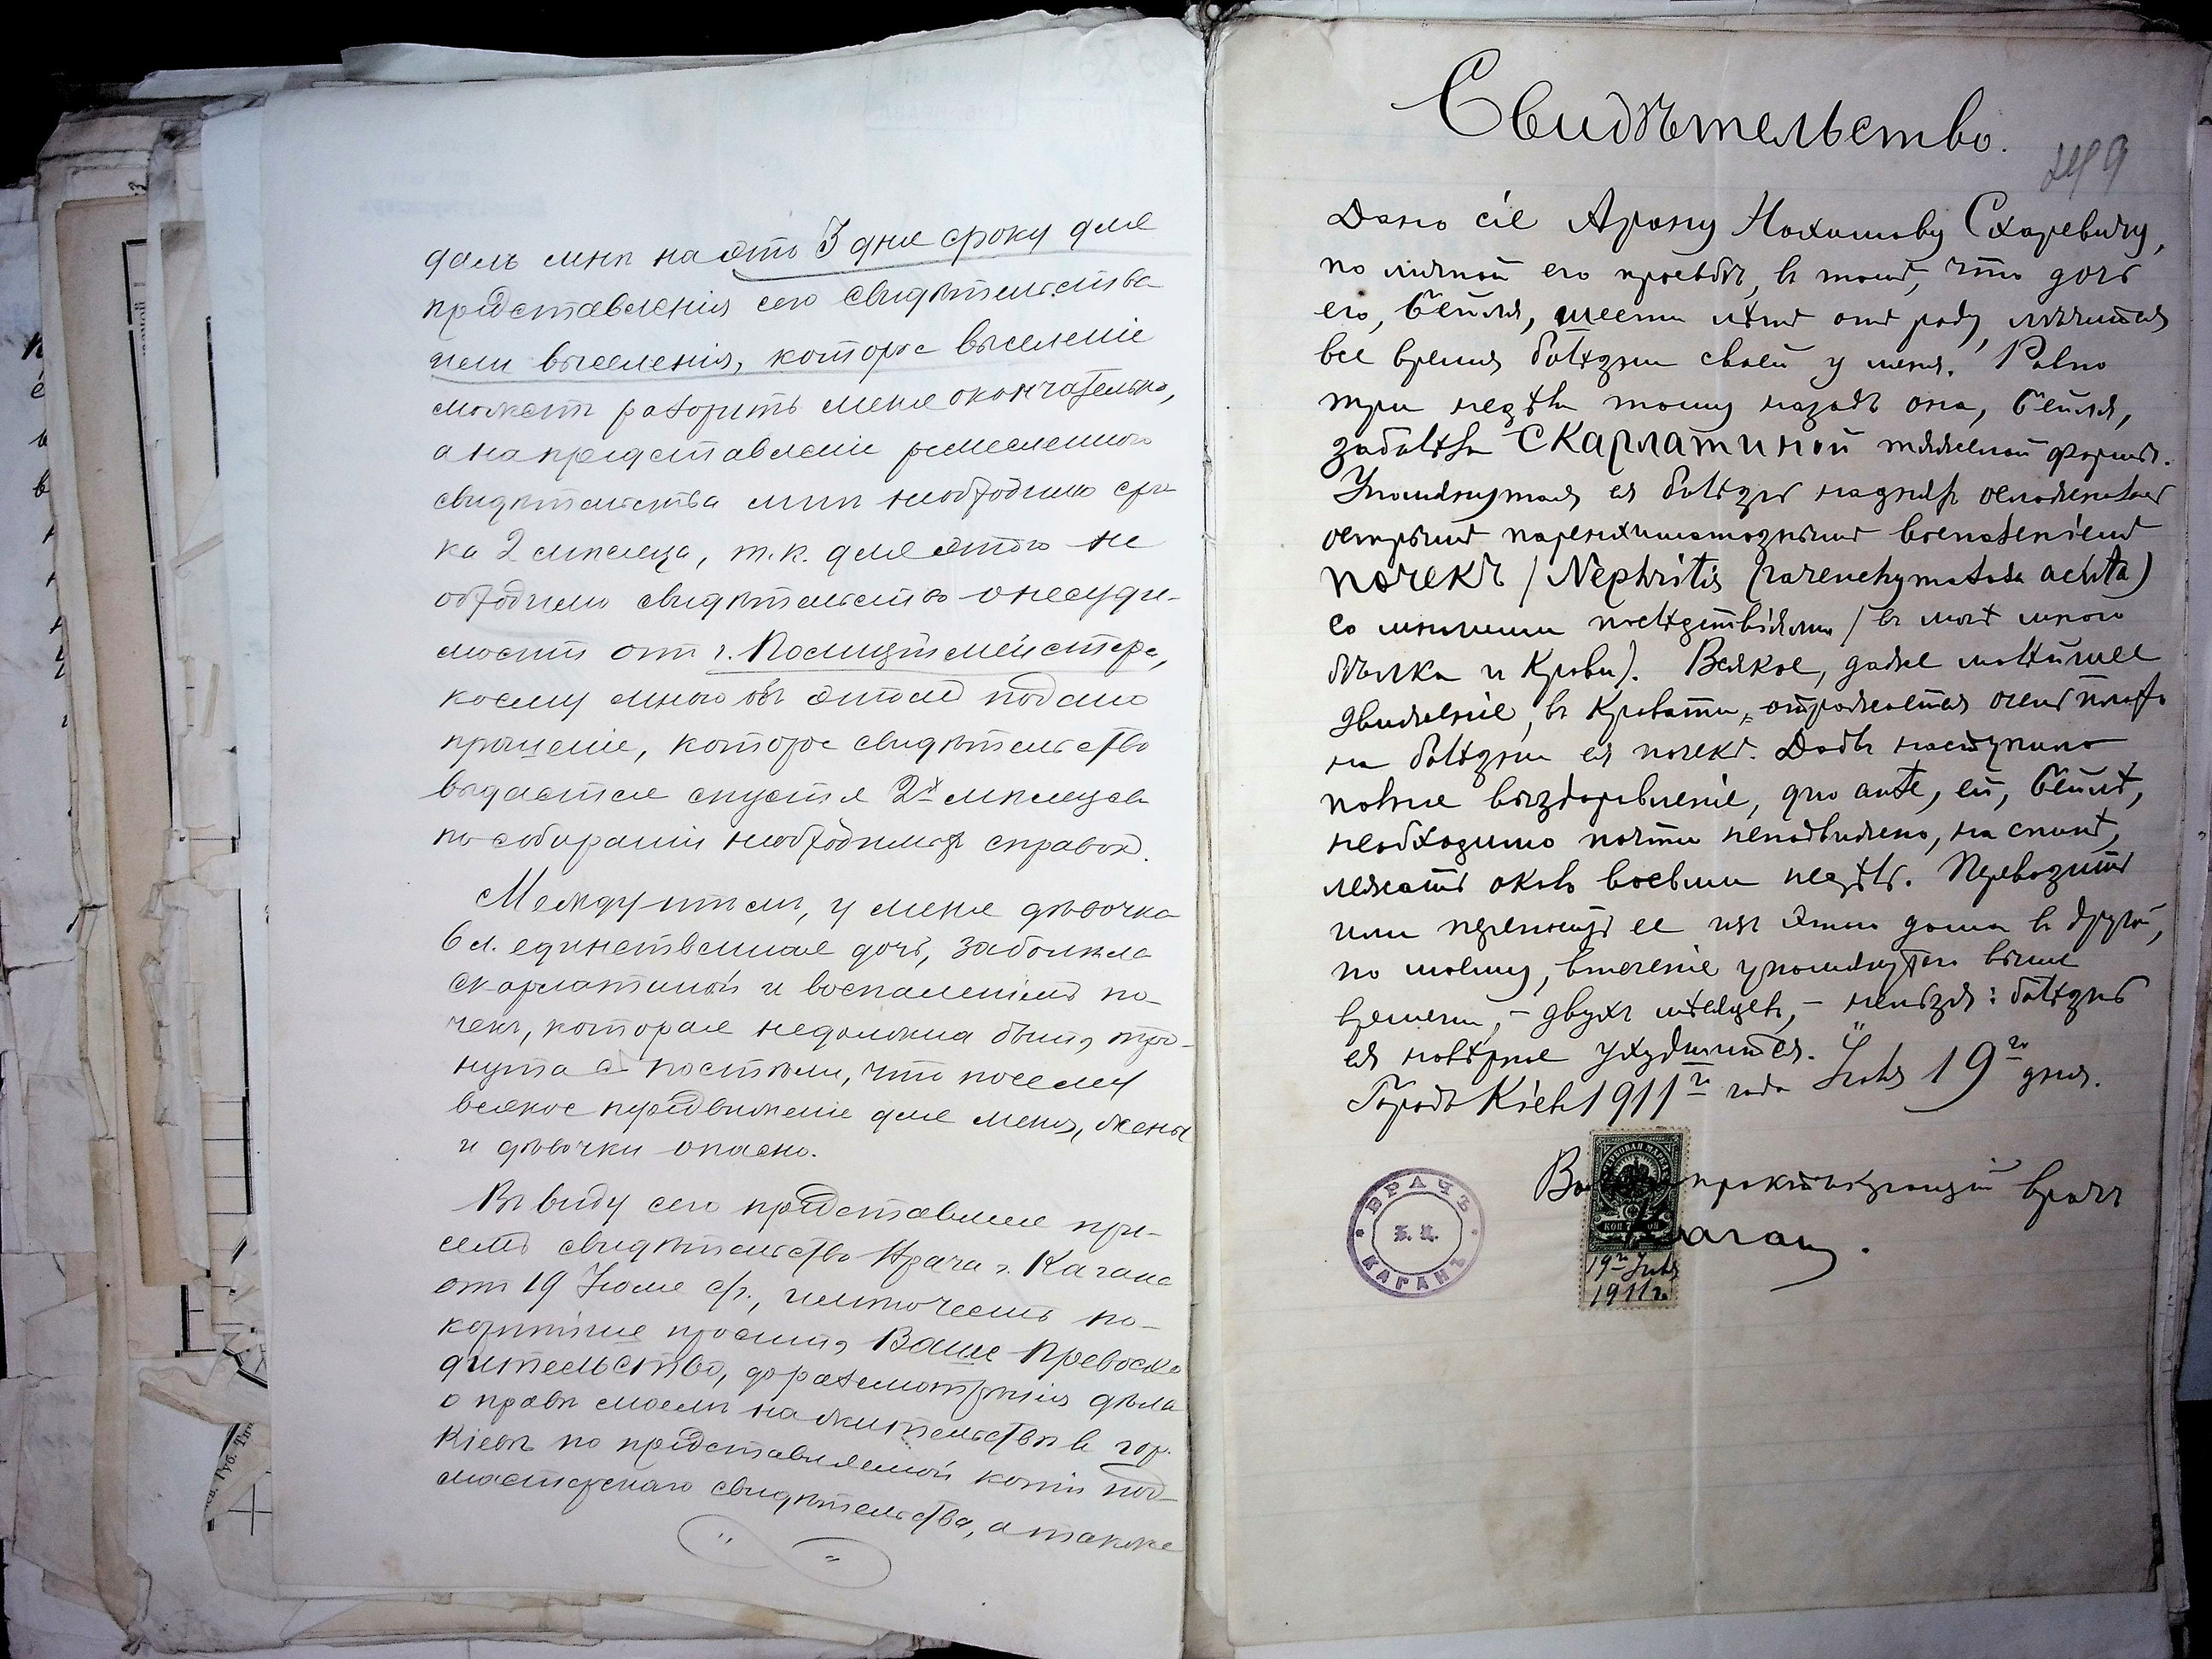 далъ мнѣ на это 3 дня сроку для
представленія сего свидѣтельства
или выселенія, которое выселеніе
можетъ разорить меня окончательно,
а на представленіе ремесленного
свидѣтельства мнѣ необходимо сро
ка 2 мѣсяца, т.к. для этого не
обходимо свидѣтельство о несуди-
мости отъ г. Полиціймейстера,
коему мною объ этомъ подано
прошеніе, которое свидѣтельство
выдается спустя 2х мѣсяцевъ
по собираніи необходимыхъ справокъ.
Между тѣмъ, у меня дѣвочка
6 л. единственная дочь, заболѣла
скарлатиной и воспаленіемъ по-
чекъ, которая недолжна быть тро-
нута съ постели, что посему
всякое передвиженіе для меня, жены
и дѣвочки опасно.
Въ виду сего представляя при-
семъ свидѣтельство Врача г. Кагана
отъ 19 Іюля с/г., имѣю честь по-
корнѣйше просить Ваше Превосхо
дительство, до разсмотрѣнія дѣла
о правѣ моемъ на жительство въ гор.
Кіевѣ по представляемой копіи под-
мастерскаго свидѣтельства, а также
Свидѣтельство.
249
Дано сіе Арону Нахимову Схаревичу,
по личной его просьбѣ, въ томъ, что дочь
его, Бейля, шести лѣтъ отъ роду, лѣчится
все время болѣзни своей у меня. Равно
три недѣли тому назадъ она, Бейля,
заболѣла скарлатиной тяжелой формы.
Упомянутая ея болѣзнь надняхъ осложнилась
острымъ паренхиматознымъ воспаленіемъ
почекъ (Nephritis parenchymatosa acuta)
со многими послѣдствіями (въ мочѣ много
бѣлка и крови). Всякое, даже малѣйшее
движеніе, въ кровати, отражается очень плохо
на болѣзни ея почекъ. Дабы наступило
полное выздоровленіе, quo ante, ей, Бейлѣ,
необходимо почти неподвижно, на спинѣ,
лежать около восьми недѣль. Перевозить
или переносить ее изъ этого дома въ другой,
по моему, втеченіе упомянутаго выше
времени, - двухъ мѣсяцевъ, - нельзя: болѣзнь
ея навѣрное ухудшится.
Городъ Кіевъ 1911го года Іюля 19го дня.
практикующій врачъ
Каганъ.
ВРАЧЪ
КАГАНЪ
ГЕРБОВАЯ МАРКА
КОП 75 КОП
19го Іюля
1911г.